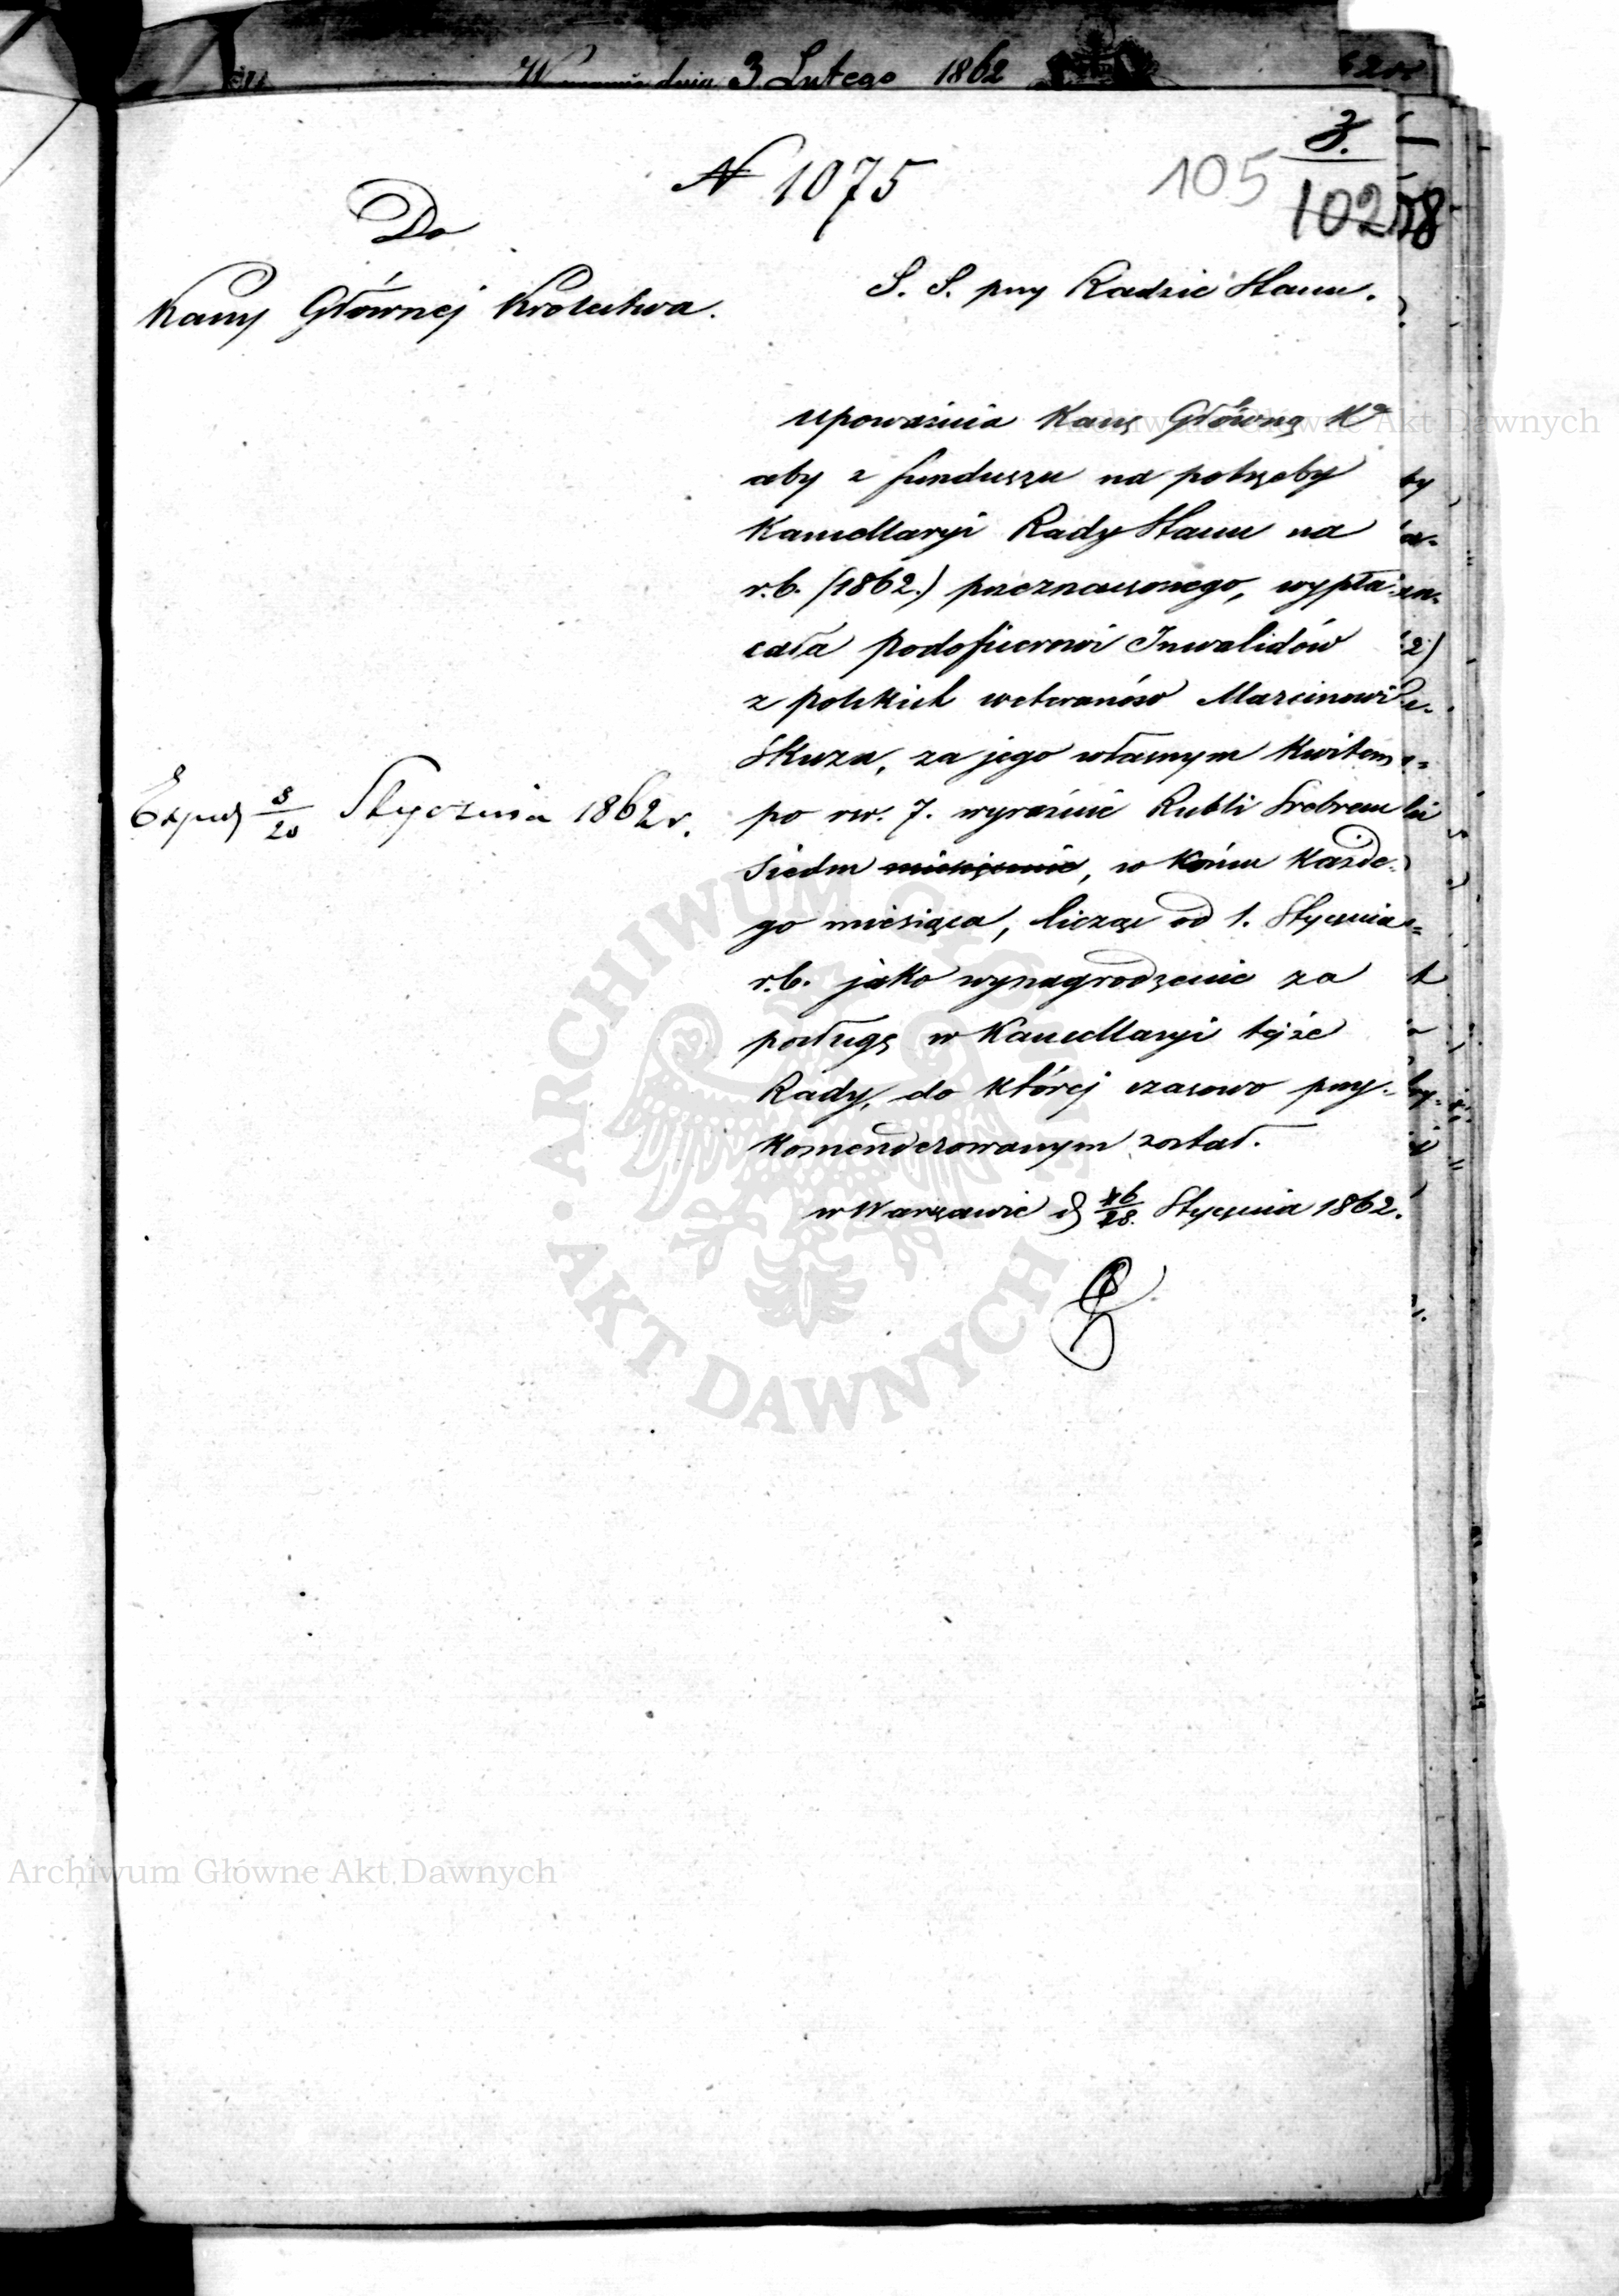 dnia 3 Lutego 1862
N 1075
105
3.
10258
Do
Kassy Głównej Królestwa.
S. S. przy Radzie Stanu.
Upoważnia Kassę Główną Kr
aby z funduszu na potrzeby
Kancellaryi Rady Stanu na
r.b. (1862.) przeznaczonego, wypła-
cała Podoficerowi Inwalidów
z polskich weteranów Marcinowi
Skuza, za jego własnym kwitem
po rsr. 7. wyraźnie Rubli Srebrem
siedm miesięcznie, w końcu każde-
go miesiąca, licząc od 1. Stycznia
r.b. jako wynagrodzenie za
posługę w Kancellaryi tejże
Rady, do której czasowo przy-
komenderowanym został.
w Warszawie d 16/28. Stycznia 1862.
Exped 8/20 Stycznia 1862 r.
Archiwum Główne Akt Dawnych
ARCHIWUM GŁÓWNE AKT DAWNYCH
Archiwum Główne Akt Dawnych